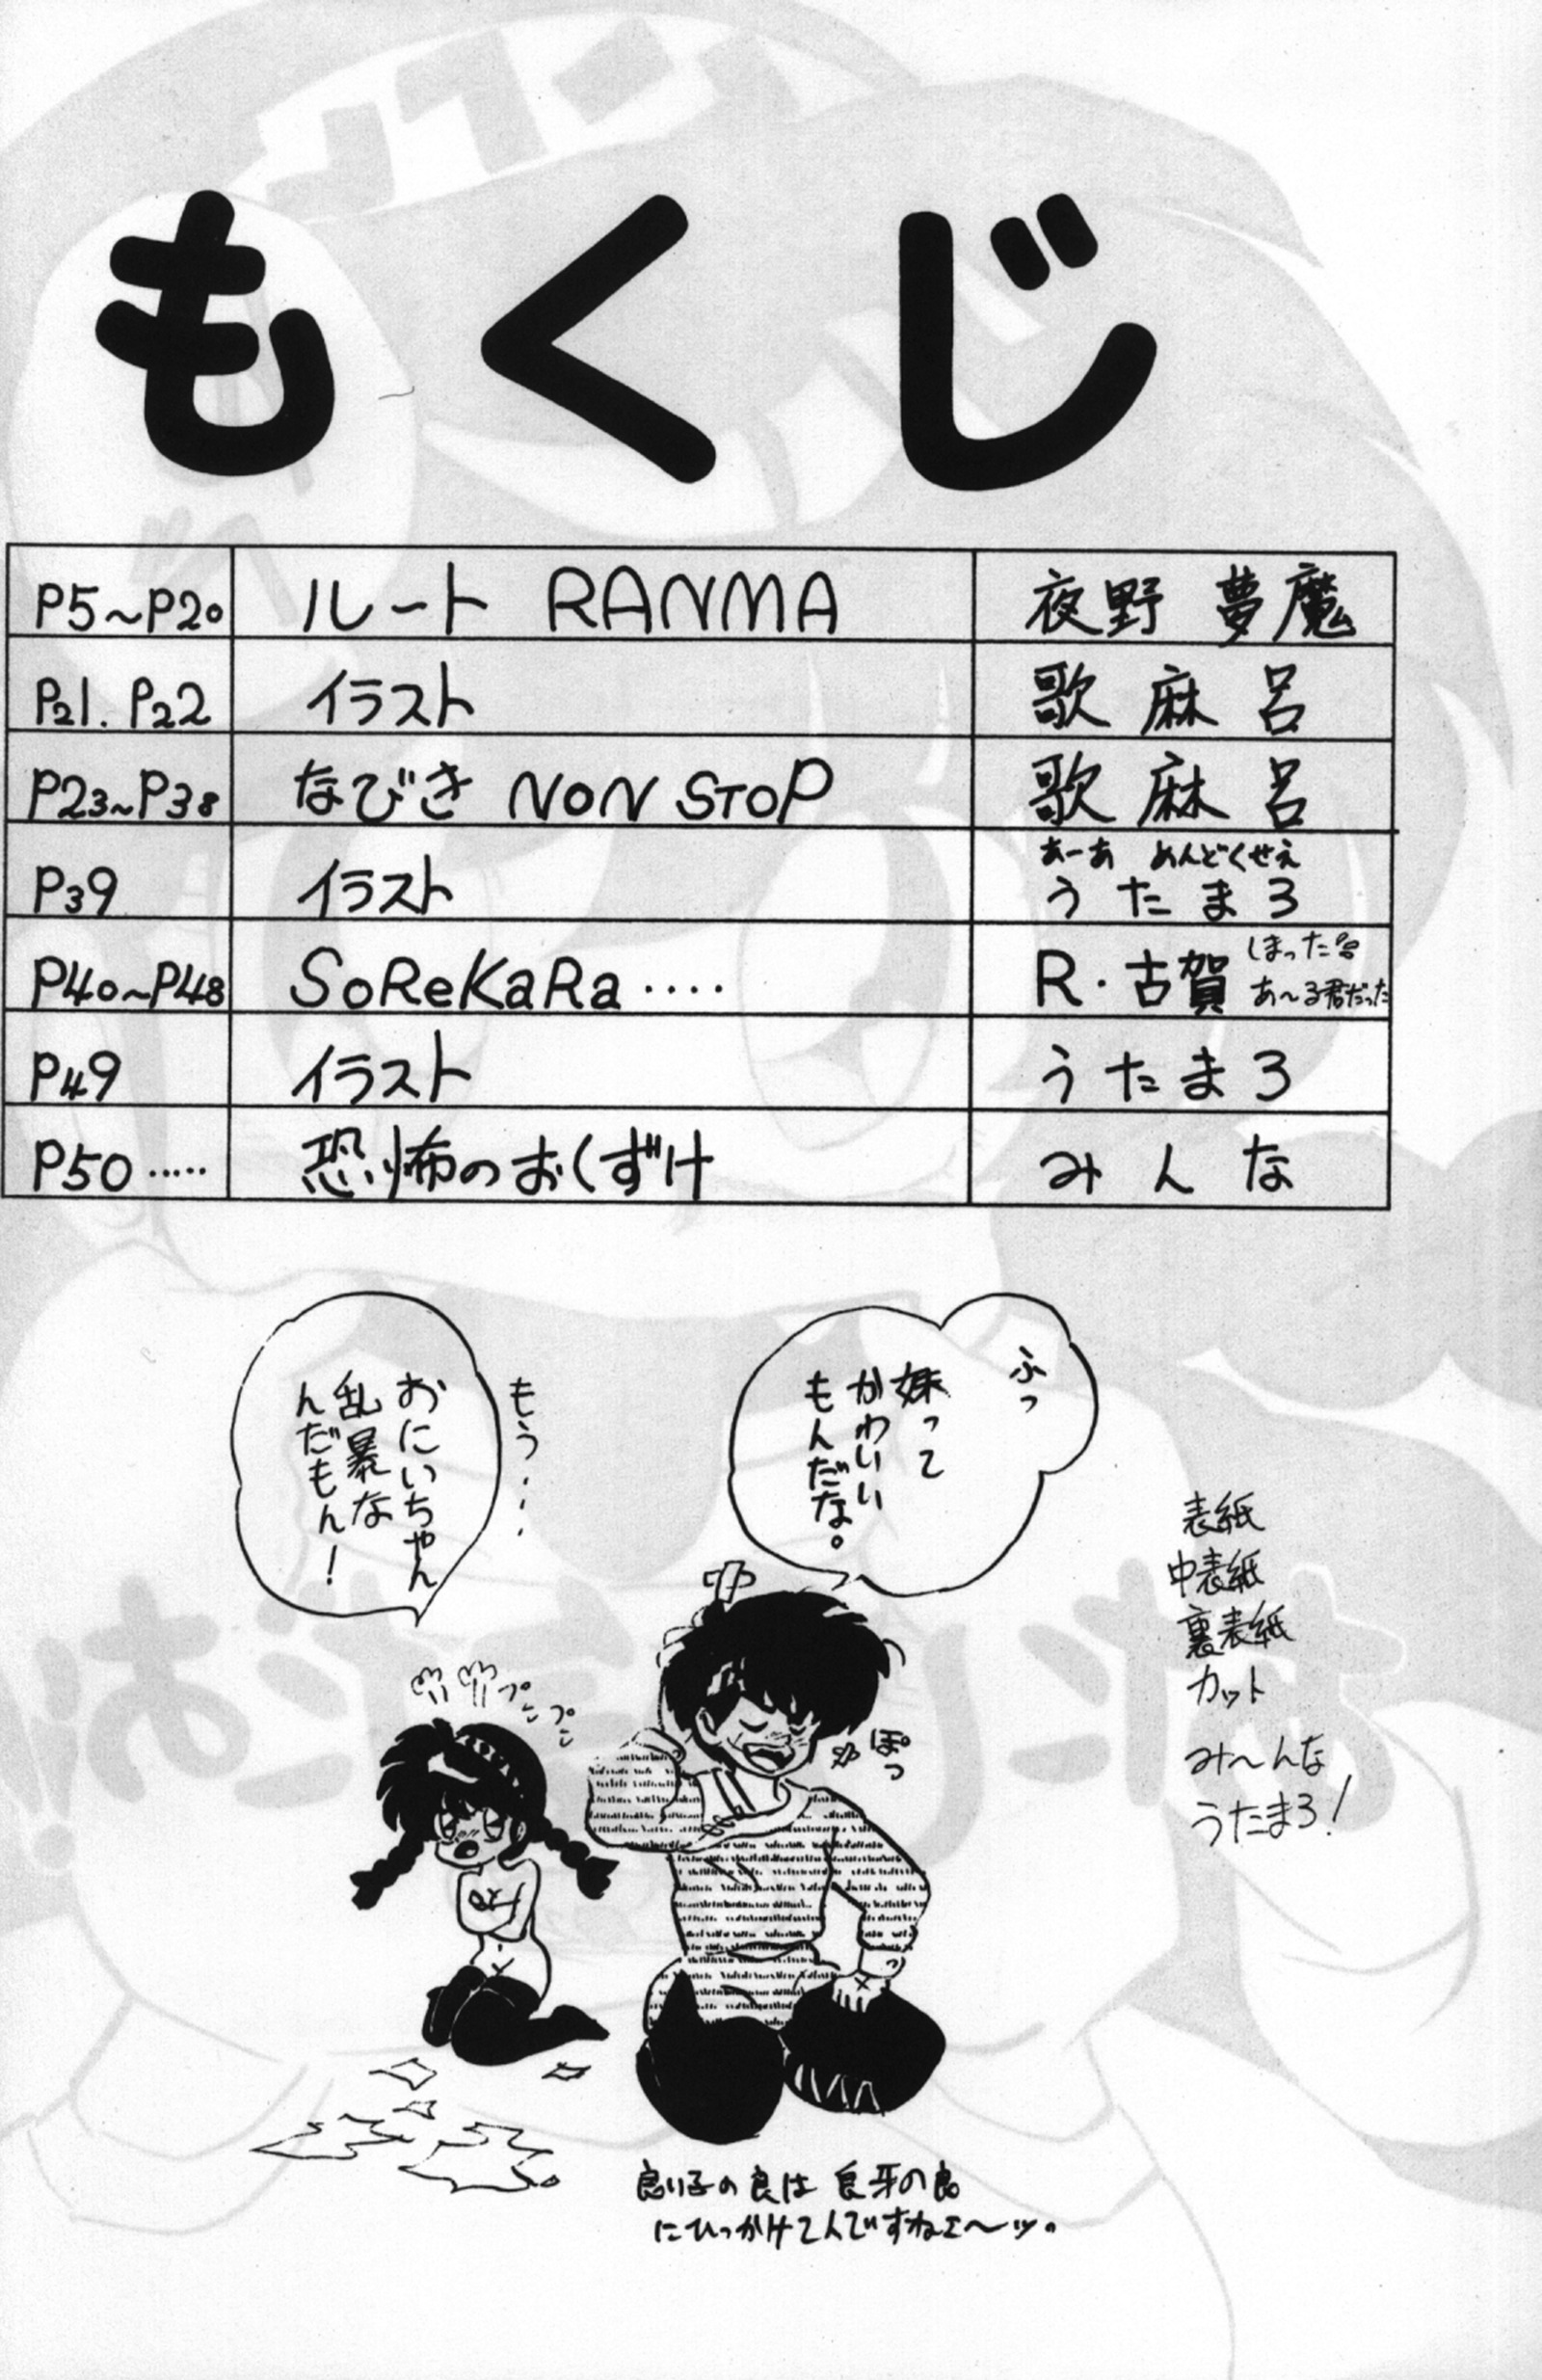 もくじ
P5～P20 ルート RANMA 夜野 夢魔
P21. P22 イラスト 歌麻呂
P23～P38 なびき NON STOP 歌麻呂
あーあ めんどくせえ
P39 イラスト うたまろ
P40～P48 SoReKaRa‥‥ R・古賀
しまった
あ～る君だった
P49 イラスト うたまろ
P50‥‥‥ 恐怖のおくずけ みんな
ふっ
妹って
かわいい
もんだな。
もう‥‥
おにいちゃん
乱暴な
んだもん!
プンプン
ぽっ
表紙
中表紙
裏表紙
カット
み～んな
うたまろ!
良い子の良は 良牙の良
にひっかけてんですねェ～ッ。